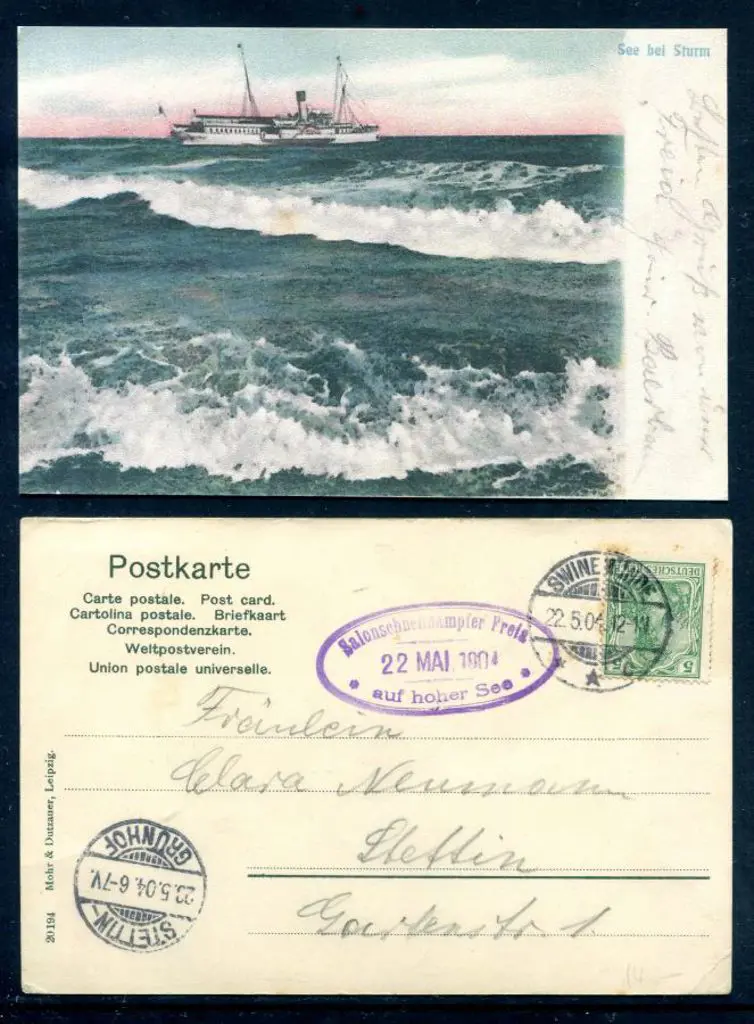 See bei Sturm
Gruß
Postkarte
Carte postale. Post card.
Cartolina postale. Briefkaart
Correspondenzkarte.
Weltpostverein.
Union postale universelle.
Salonschnelldampfer Freia
22 MAI 1904
* auf hoher See *
SWINEMÜNDE
22.5.04 12-1N
* A * c
DEUTSCHES
5
Fräulein
Clara Neumann
Stettin
Gartenstr. 1.
GRÜNHOF
23.5.04. 6-7V.
STETTIN-
20194 Mohr & Dutzauer, Leipzig.
14 -